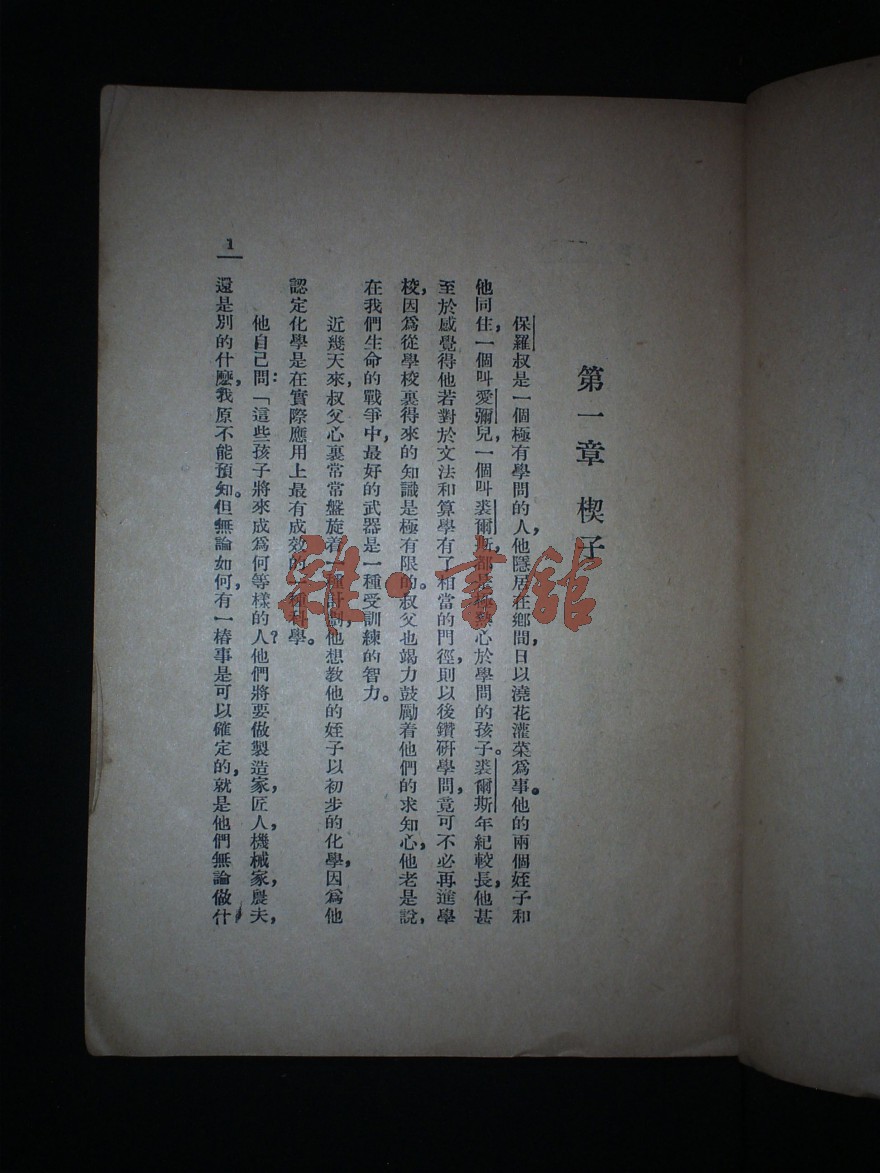 第一章 楔子
保羅叔是一個極有學問的人,他隱居在鄉間,日以澆花灌菜爲事。他的兩個姪子和
他同住,一個叫愛彌兒,一個叫裘爾斯,都是極熱心於學問的孩子。裘爾斯年紀較長,他甚
至於感覺得他若對於文法和算學有了相當的門徑,則以後鑽研學問,竟可不必再進學
校,因爲從學校裏得來的知識是極有限的。叔父也竭力鼓勵着他們的求知心,他老是說,
在我們生命的戰爭中,最好的武器是一種受訓練的智力。
近幾天來,叔父心裏常常盤旋着一種計劃,他想教他的姪子以初步的化學,因爲他
認定化學是在實際應用上最有成效的一種科學。
他自己問:「這些孩子將來成爲何等樣的人?他們將要做製造家,匠人,機械家,農夫,
還是別的什麼,我原不能預知。但無論如何,有一樁事是可以確定的,就是他們無論做什
1
雜·書舘